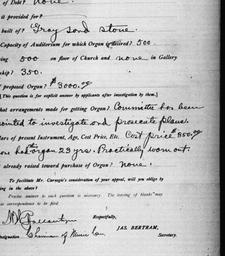 of Debt? None.
it provided for?
built of? Gray sand stone.
Capacity of Auditorium for which Organ is desired? 500
ing 500 on floor of Church and none in Gallery
ship? 350.
proposed Organ? $3000.00
[This question is for explicit answer by applicants after investigation by them.]
hat arrangements made for getting Organ? Committee has been
pointed to investigate and prosecute plans.
lars of present Instrument, Age, Cost Price, Etc. Cost price $850.00
one had organ 23 yrs. Practically worn out.
already raised toward purchase of Organ? None.
To facilitate Mr. Carnegie's consideration of your appeal, will you oblige by
ing in the above?
Precise answer to each question is necessary. The leaving of blanks may
in correspondence to be filed.
Respectfully,
JAS. BERTRAM,
Secretary.
esignation Chairman of Music Com.